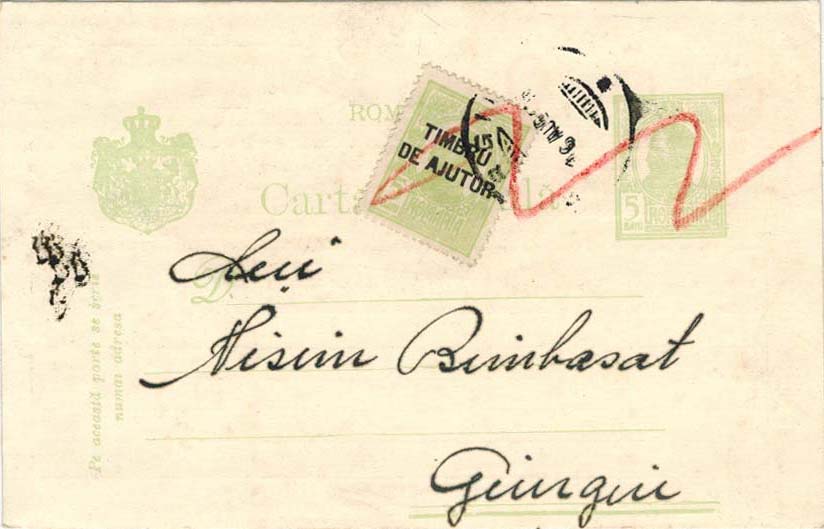 ROM
TIMBRU
DE AJUTOR
ROMANIA
5
BANI
ROMANIA
Carta lă
D
Nisim Bimbasat
Giurgiu
Pe această parte se scrie
numai adresa